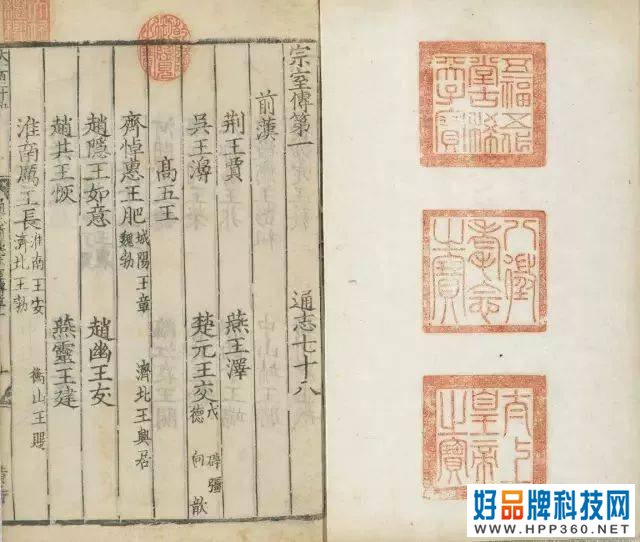 五福五代
堂古稀
天子寶
八徵
耄念
之寶
太上
皇帝
之寶
宗室傳第一 通志七十八
前漢
荆王賈 燕王澤
吳王濞 楚元王交 戊 辟彊 德 向 歆
高五王
齊悼惠王肥 城陽王章 魏勃 濟北王興居
趙隱王如意 趙幽王友
趙共王恢 燕靈王建
淮南厲王長 淮南王安 濟北王勃 衡山王賜
好品牌科技网
WWW.HPP360.NET